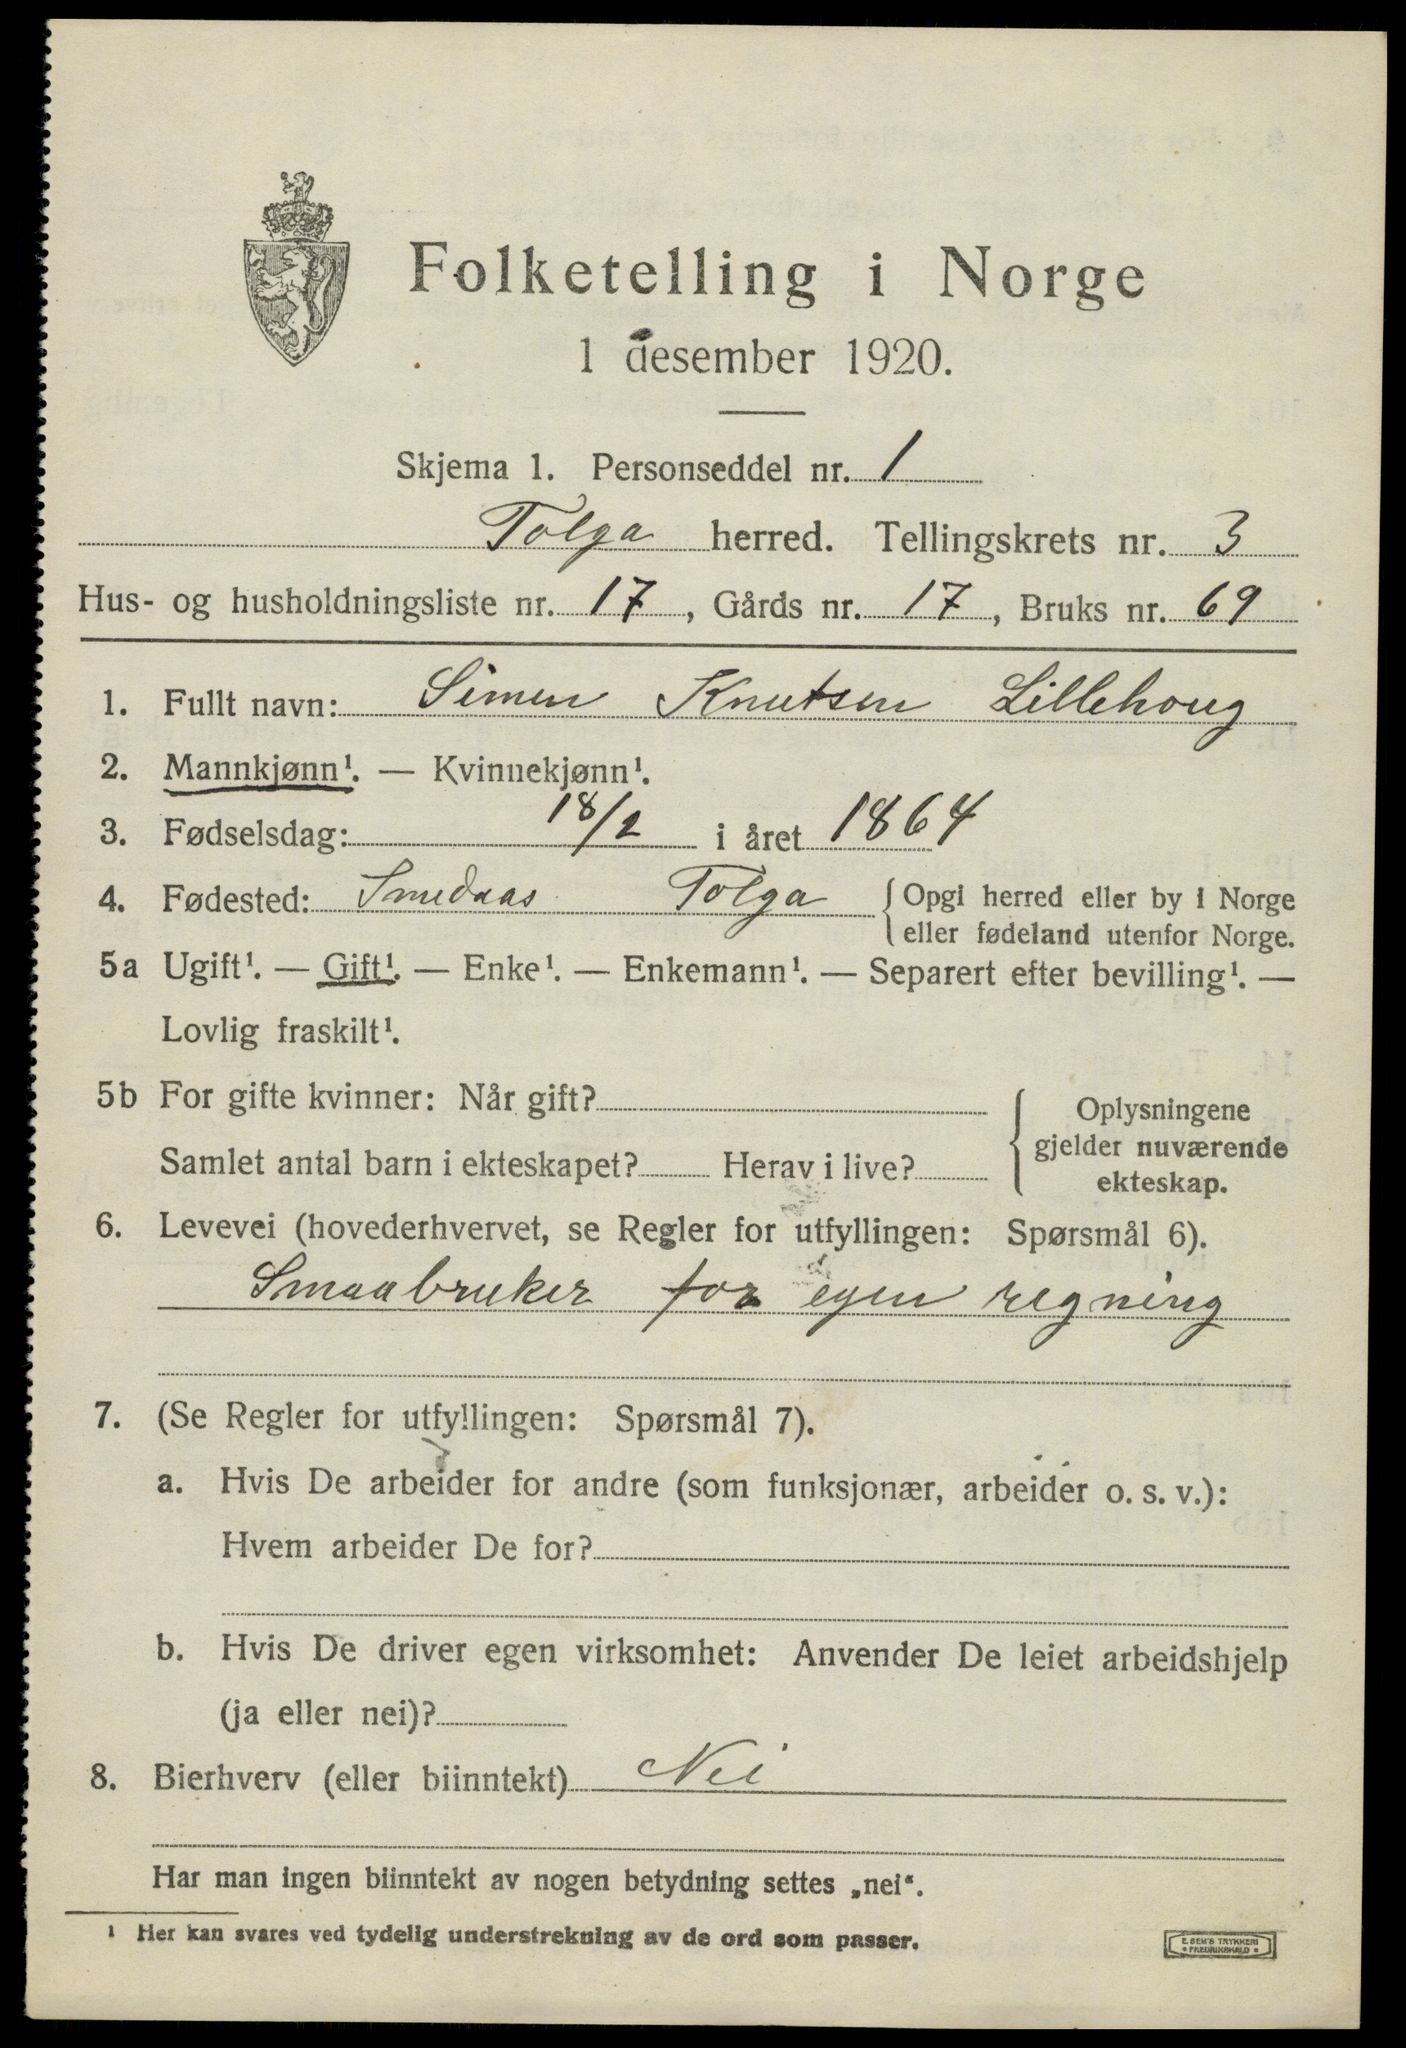 Folketelling i Norge
1 desember 1920.
Skjema 1. Personseddel nr. 1
Tolga herred. Tellingskrets nr. 3
Hus- og husholdningsliste nr. 17, Gårds nr. 17, Bruks nr. 69
1. Fullt navn: Simen Knutsen Lillehoug
2. Mannkjønn¹. — Kvinnekjønn¹.
3. Fødselsdag: 18/2 i året 1864
4. Fødested: Smedaas Tolga {Opgi herred eller by i Norge
eller fødeland utenfor Norge.
5a Ugift¹. — Gift¹. — Enke¹. — Enkemann¹. — Separert efter bevilling¹. —
Lovlig fraskilt¹.
5b For gifte kvinner: Når gift?
Samlet antal barn i ekteskapet? Herav i live?
Oplysningene
gjelder nuværende
ekteskap.
6. Levevei (hovederhvervet, se Regler for utfyllingen: Spørsmål 6).
Smaabruker for egen regning
7. (Se Regler for utfyllingen: Spørsmål 7).
a. Hvis De arbeider for andre (som funksjonær, arbeider o. s. v.):
Hvem arbeider De for?
b. Hvis De driver egen virksomhet: Anvender De leiet arbeidshjelp
(ja eller nei)?
8. Bierhverv (eller biinntekt) Nei
Har man ingen biinntekt av nogen betydning settes „nei“.
¹ Her kan svares ved tydelig understrekning av de ord som passer.
E. SEM'S TRYKKERI
FREDRIKSHALD